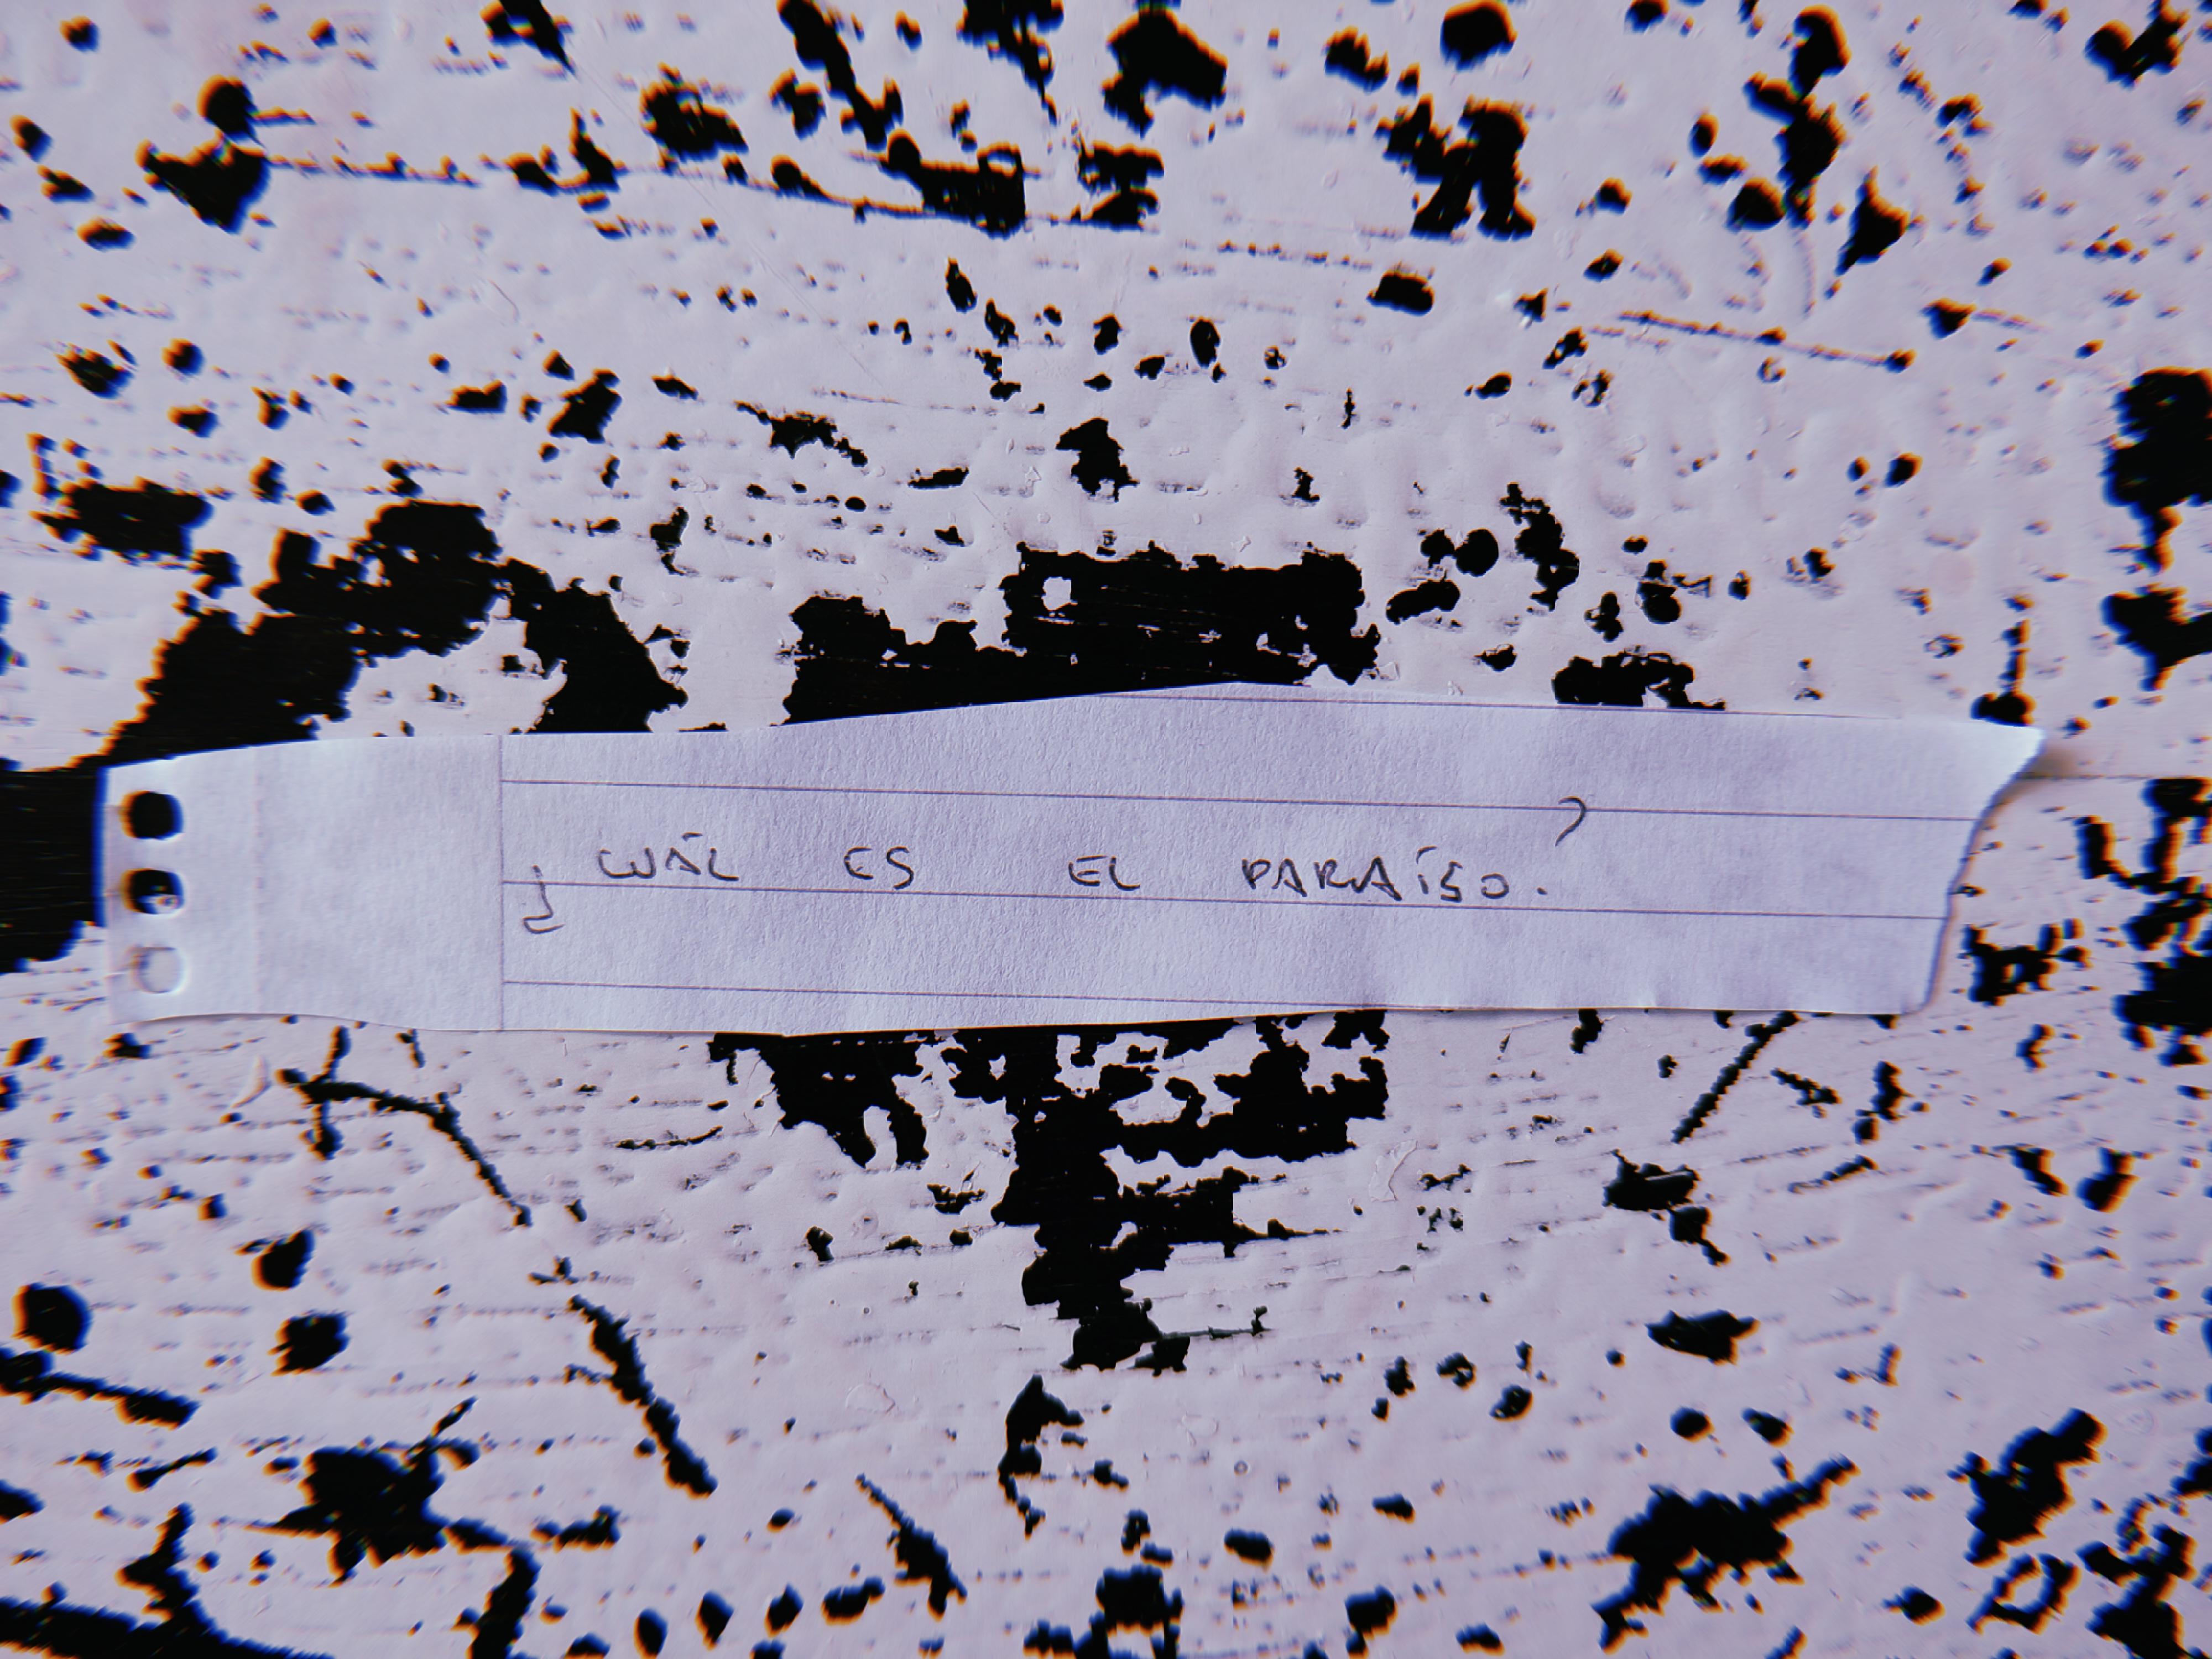 ¿CUÁL ES EL PARAÍSO?